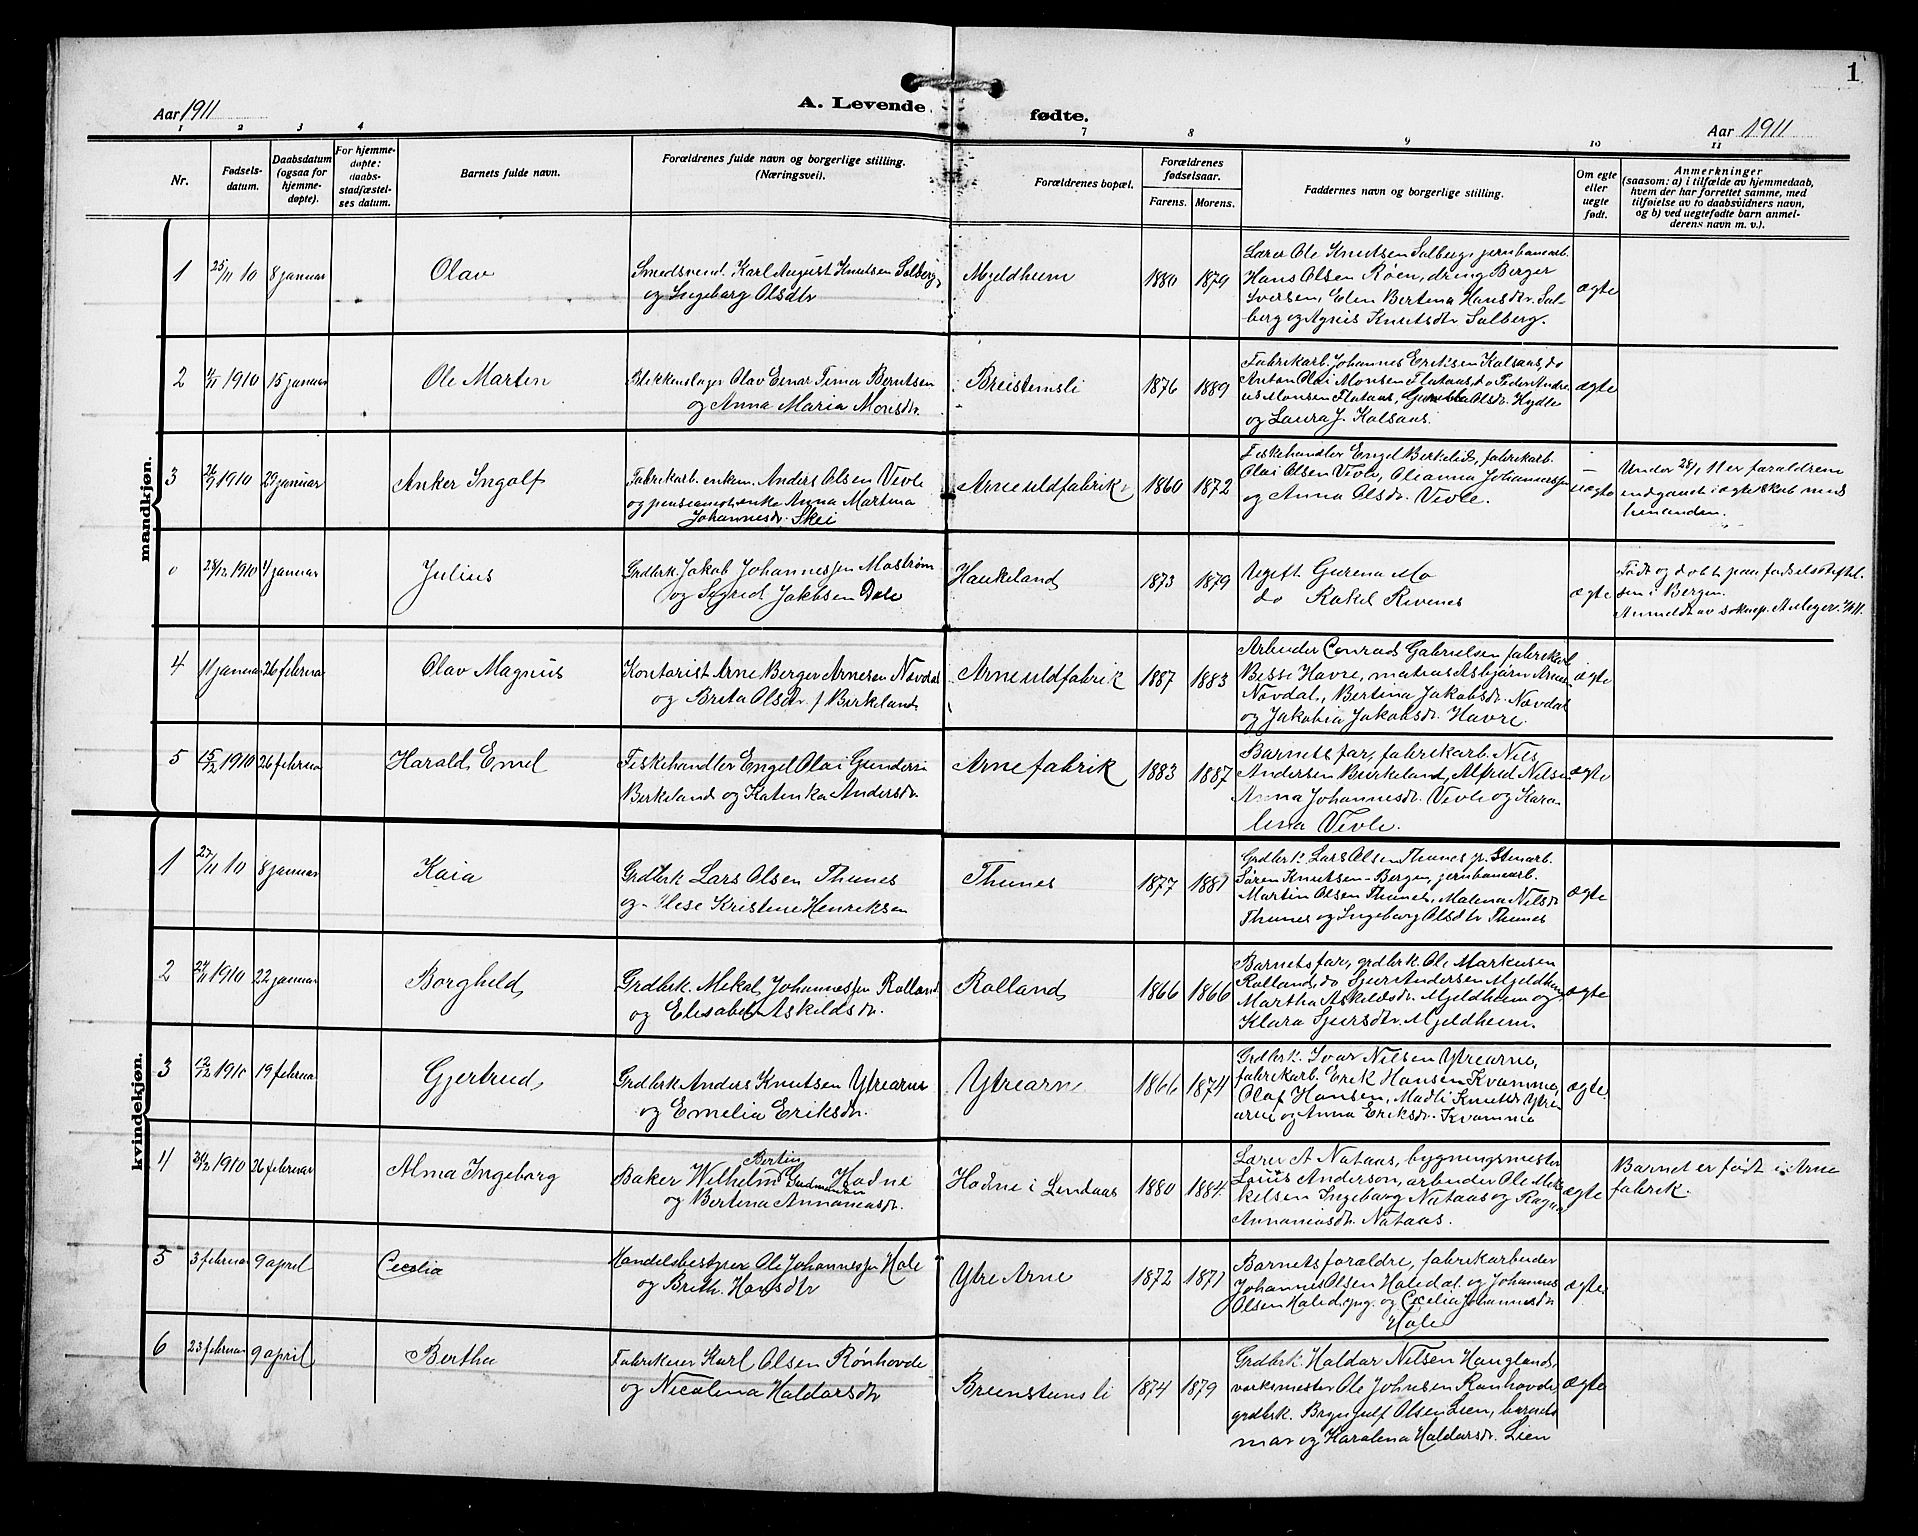 1
Aar 1911
A. Levende
fødte.
Aar 1911
1 2 3 4 7 8 9 10 11
Nr.
Fødsels-
datum.
Daabsdatum
(ogsaa for
hjemme-
døpte).
For hjemme-
døpte:
daabs-
stadfæstel-
ses datum.
Barnets fulde navn.
Forældrenes fulde navn og borgerlige stilling.
(Næringsvei).
Forældrenes bopæl.
Forældrenes
fødselsaar.
Farens. Morens.
Faddernes navn og borgerlige stilling.
Om egte
eller
uegte
født.
Anmerkninger
(saasom: a) i tilfælde av hjemmedaab,
hvem der har forrettet samme, med
tilføielse av to daabsvidners navn,
og b) ved uegtefødte barn anmel-
derens navn m. v.).
mandkjøn.
1 25/11 10 8 januar Olav
Smedsvend. Karl August Knutsen Solberg,
og Ingeborg Olsdtr
Mjeldheim 1880 1879
Lærer Ole Knutsen Solberg, jernbanearb.
Hans Olsen Røen, dreng Berger
Iversen, Elen Bertina Hansdtr. Sol-
berg og Agnes Knutsdtr Solberg.
ægte
2 1910 15 januar Ole Martin
Blikkenslager Olav Einar Timar Berntsen
og Anna Maria Monsdtr.
Breistensli 1876 1889
Fabrikarb. Johannes Eriksen Kalsaas, do
Anton Olai Monsen Flataas, do Peder Andre
as Monsen Flataas, Olsdtr. Hydle
og Laura J. Kalsaas.
ægte
3 26/9 1910 29 januar Anker Ingolf
Fabrikarb. enkem. Anders Olsen Vevle
og enke Anna Martina
Johannesdtr. Skei
Arne uldfabrik 1860 1872
Fiskehandler Engel Birkeland, fabrikarb.
Olai Olsen Vevle, Olianna Johannessen
og Anna Olsdtr. Vevle.
uægte
Under 28/1 11 er forældrene
indgaaet i ægteskab med
hinanden.
0 28/12 1910 4 januar Julius
Grdbrk. Jakob Johannessen Mostrøm
og Sigrid Jakobsen Dale
Haukeland 1873 1879
Ugift Gurina Mo
do Rakel Rivenes
ægte
Født og døbt paa fødselsstiftel-
sen i Bergen.
Anmeldt av soknep.
4 11 januar 26 februar Olav Magnus
Kontorist Arne Berger Arnesen Nøvdal
og Brita Olsdtr f Birkeland
Arne uldfabrik 1887 1883
Arbeider Conrad Gabrielsen, fabrikarb
Besse Havre, matros Asbjørn Arne
Nøvdal, Bertina Jakobsdtr. Nøvdal
og Jakobia Jakobsdtr. Havre
ægte
5 15/12 1910 26 februar Harald Emil
Fiskehandler Engel Olai Gundersen
Birkeland og Katinka Andersdtr.
Arne fabrik 1883 1887
Barnets far, fabrikarb. Nils
Andersen Birkeland, Alfred Nilsen
Anna Johannesdtr. Vevle og Kara-
lina Vevle.
ægte
kvindekjøn.
1 27/11 10 8 januar Kaia
Grdbrk Lars Olsen Thunes
og Else Kristine Henriksen
Thunes 1877 1881
Grdbrk. Lars Olsen Thunes, Stenarb.
Søren Knutsen Bergen, jernbanearb.
Martin Olsen Thunes, Malena Nilsdtr.
Thunes og Ingeborg Olsdtr Thunes
ægte
2 27/11 1910 22 januar Borghild
Grdbrk. Mikal Johannessen Rolland
og Elisabet Askildsdtr.
Rolland 1866 1866
Barnets far, grdbrk. Ole Markusen
Rolland, do Sjur Andersen Mjeldheim
Martha Askildsdtr. Mjeldheim og
Klara Sjursdtr. Mjeldheim.
ægte
3 12/12 1910 19 februar Gjertrud
Grdbrk Anders Knutsen Ytrearne
og Emelia Eriksdtr.
Ytrearne 1866 1874
Grdbrk. Ivar Nilsen Ytrearne,
fabrikarb. Erik Hansen Kvamme,
Olaf Hansen, Madli Knutsdtr. Ytre
arne og Anna Eriksdtr. Kvamme
ægte
4 1910 26 februar Alma Ingeborg
Bertin
Baker Wilhelm Gudmunsen Hodne
og Bertina Annaniasdtr.
Hodne i Lindaas 1880 1884.
Lærer A Nataas, bygningsmester
Louis Anderson, arbeider Ole Mik-
kelsen Ingeborg Nataas og Ragna
Annaniasdtr. Nataas.
ægte
Barnet er født i Arne
fabrik.
5 3 februar 9 april Cecilia
Handelsbestyrer Ole Johannessen Hole
og Brith. Hansdtr
Ytre Arne 1872 1871
Barnets forældre, fabrikarbeider
Johannes Olsen Haledal og Johannes
Olsen Haled. og Cecilia Johannesdtr
Hole
ægte
6 23 februar 9 april Bertha
Fabrikeier Karl Olsen Rønhovde
og Nicolina Haldorsdtr
Breenstensli 1874 1879
Grdbrk. Haldor Nilsen Haugland,
verksmester Ole Johnsen Rønhovde,
grdbrk. Brynjulf Olsen Lien, barnets
mor og Karolina Haldorsdtr. Lien
ægte